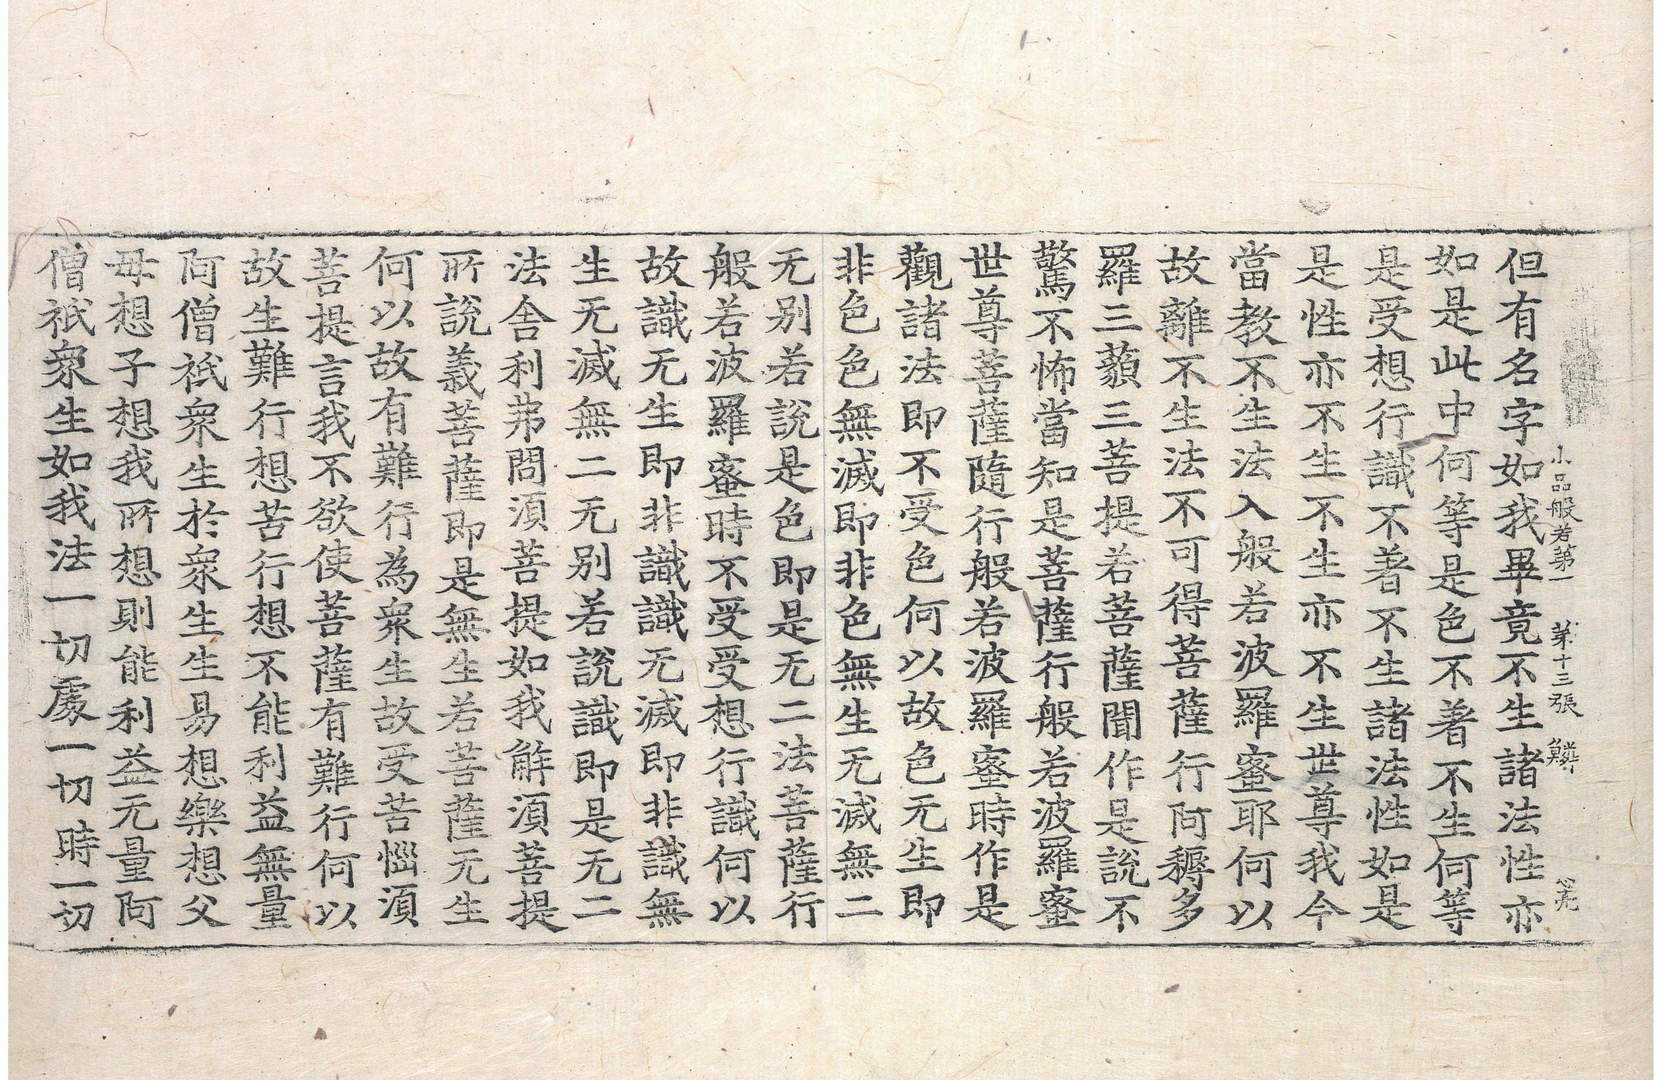 小品般若第一 第十三張 鱗
但有名字如我畢竟不生諸法性亦
如是此中何等是色不著不生何等
是受想行識不著不生諸法性如是
是性亦不生不生亦不生世尊我今
當教不生法入般若波羅蜜耶何以
故離不生法不可得菩薩行阿耨多
羅三藐三菩提若菩薩聞作是說不
驚不怖當知是菩薩行般若波羅蜜
世尊菩薩隨行般若波羅蜜時作是
觀諸法即不受色何以故色无生即
非色色無滅即非色無生无滅無二
无别若說是色即是无二法菩薩行
般若波羅蜜時不受受想行識何以
故識无生即非識識无滅即非識無
生无滅無二无别若說識即是无二
法舍利弗問須菩提如我解須菩提
所說義菩薩即是無生若菩薩无生
何以故有難行為衆生故受苦惱須
菩提言我不欲使菩薩有難行何以
故生難行想苦行想不能利益無量
阿僧祇衆生於衆生生易想樂想父
母想子想我所想則能利益无量阿
僧祇衆生如我法一切處一切時一切